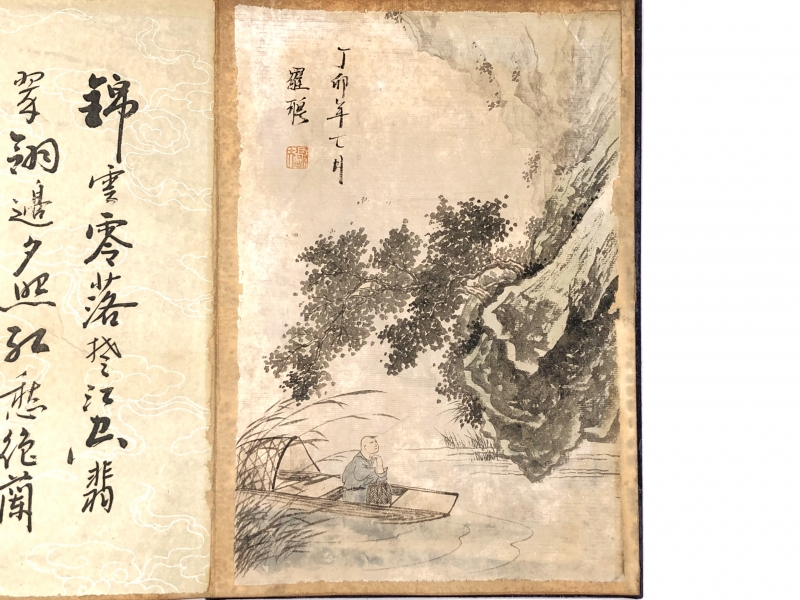 丁卯年七月
羅聘
錦雲零落楚江空翡
翠翎邊夕照紅愁絕蘭